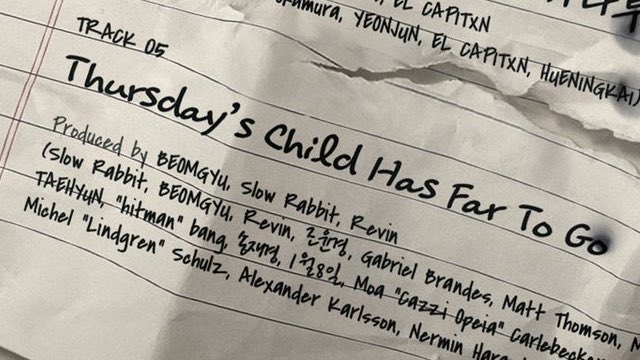 EL CAPITXN
YEONJUN, EL CAPITXN, HUENINGKAI)
TRACK 05
Thursday's Child Has Far To Go
Produced by BEOMGYU, Slow Rabbit, Revin
(Slow Rabbit, BEOMGYU, Revin, 조윤경, Gabriel Brandes, Matt Thomson,
TAEHYUN, "hitman" bang, 송재경, 1월8일, Moa "Cazzi Opeia" Carlebecker
Michel "Lindgren" Schulz, Alexander Karlsson, Nermin